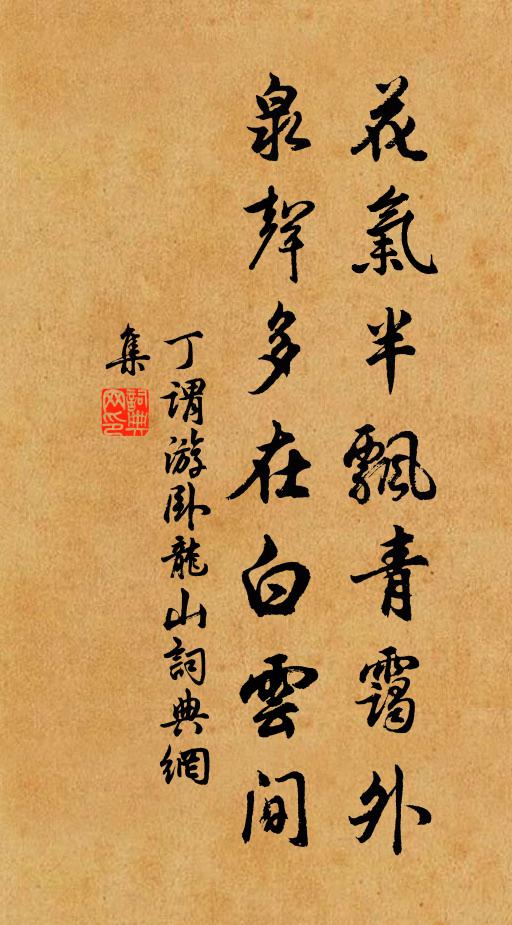 花氣半飄青靄外
泉聲多在白雲間
丁謂游臥龍山詞典網
集
詞典網印